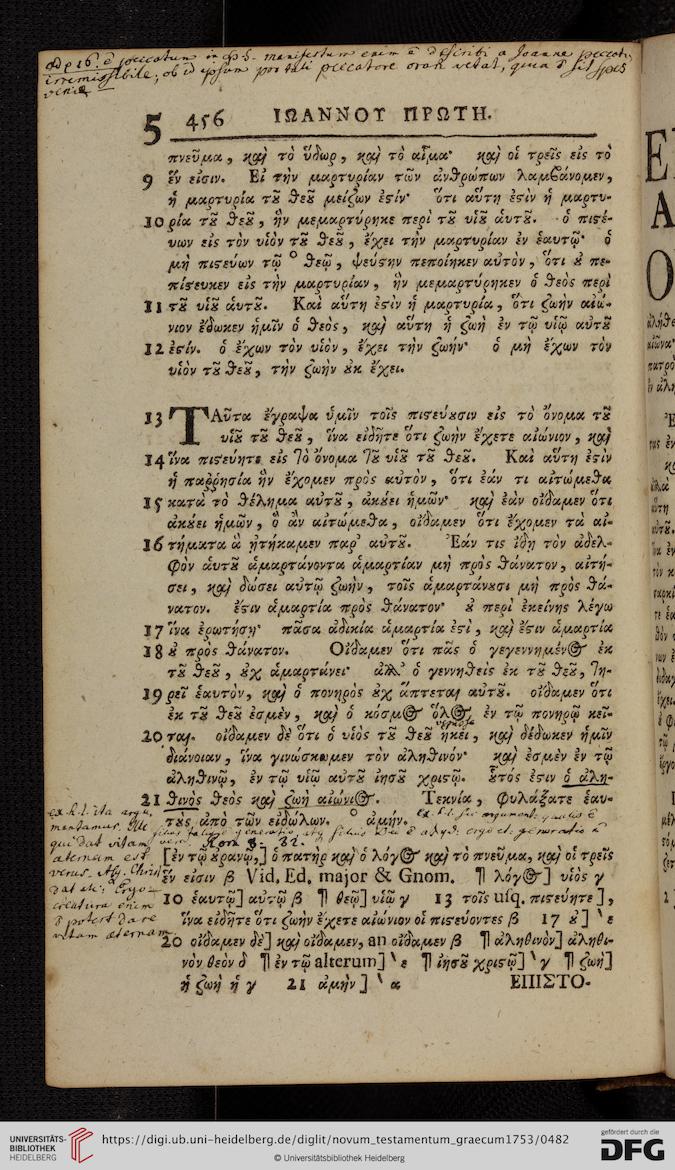 5 456 ΙΩΑΝΝΟΥ ΠΡΩΤΗ.
πνεῦμα, καὶ τὸ ὕδωρ, καὶ τὸ αἷμα· καὶ οἱ τρεῖς εἰς τὸ
9 ἕν εἰσιν. Εἰ τὴν μαρτυρίαν τῶν ἀνθρώπων λαμβάνομεν,
ἡ μαρτυρία τοῦ θεοῦ μείζων ἐστίν· ὅτι αὕτη ἐστὶν ἡ μαρτυ-
10 ρία τοῦ θεοῦ, ἣν μεμαρτύρηκε περὶ τοῦ υἱοῦ ἁυτοῦ. ὁ πιστέ-
υων εἰς τὸν υἱὸν τοῦ θεοῦ, ἔχει τὴν μαρτυρίαν ἐν ἑαυτῷ· ὁ
μὴ πιστεύων τῷ ° θεῷ, ψεύστην πεποίηκεν αὐτὸν, ὅτι οὐ πε-
πίστευκεν εἰς τὴν μαρτυρίαν, ἣν μεμαρτύρηκεν ὁ θεὸς περὶ
11 τοῦ υἱοῦ ἁυτοῦ. Καὶ αὕτη ἐστὶν ἡ μαρτυρία, ὅτι ζωὴν αἰώ-
νιον ἔδωκεν ἡμῖν ὁ θεὸς, καὶ αὕτη ἡ ζωὴ ἐν τῷ υἱῷ αὐτοῦ
12 ἐστίν. ὁ ἔχων τὸν υἱὸν, ἔχει τὴν ζωήν· ὁ μὴ ἔχων τὸν
υἱὸν τοῦ θεοῦ, τὴν ζωὴν οὐκ ἔχει.
13 ΤΑῦτα ἔγραψα ὑμῖν τοῖς πιστεύουσιν εἰς τὸ ὄνομα τοῦ
υἱοῦ τοῦ θεοῦ, ἵνα εἰδῆτε ὅτι ζωὴν ἔχετε αἰώνιον, καὶ
14 ἵνα πιστεύητε εἰς τὸ ὄνομα τοῦ υἱοῦ τοῦ θεοῦ. Καὶ αὕτη ἐστὶν
ἡ παῤῥησία ἣν ἔχομεν πρὸς αὐτὸν, ὅτι ἐάν τι αἰτώμεθα
15 κατὰ τὸ θέλημα αὐτοῦ, ἀκούει ἡμῶν· καὶ ἐὰν οἴδαμεν ὅτι
ἀκούει ἡμῶν, ὃ ἂν αἰτώμεθα, οἴδαμεν ὅτι ἔχομεν τὰ αἰ-
16 τήματα ἃ ᾐτήκαμεν παρ' αὐτοῦ. Ἐάν τις ἴδῃ τὸν ἀδελ-
φὸν ἁυτοῦ ἁμαρτάνοντα ἁμαρτίαν μὴ πρὸς θάνατον, αἰτή-
σει, καὶ δώσει αὐτῷ ζωὴν, τοῖς ἁμαρτάνουσι μὴ πρὸς θά-
νατον. ἔστιν ἁμαρτία πρὸς θάνατον· οὐ περὶ ἐκείνης λέγω
17 ἵνα ἐρωτήσῃ· πᾶσα ἀδικία ἁμαρτία ἐστὶ, καὶ ἔστιν ἁμαρτία
18 οὐ πρὸς θάνατον. Οἴδαμεν ὅτι πᾶς ὁ γεγεννημένος ἐκ
τοῦ θεοῦ, οὐχ ἁμαρτάνει· ἀλλ' ὁ γεννηθεὶς ἐκ τοῦ θεοῦ, τη-
19 ρεῖ ἑαυτὸν, καὶ ὁ πονηρὸς οὐχ ἅπτεται αὐτοῦ. οἴδαμεν ὅτι
ἐκ τοῦ θεοῦ ἐσμὲν, καὶ ὁ κόσμος ὅλος ἐν τῷ πονηρῷ κεῖ-
20 ται. οἴδαμεν δὲ ὅτι ὁ υἱὸς τοῦ θεοῦ ἥκει, καὶ δέδωκεν ἡμῖν
διάνοιαν, ἵνα γινώσκωμεν τὸν ἀληθινόν· καὶ ἐσμὲν ἐν τῷ
ἀληθινῷ, ἐν τῷ υἱῷ αὐτοῦ ἰησοῦ χριστῷ. οὗτός ἐστιν ὁ ἀλη-
21 θινὸς θεὸς καὶ ζωὴ αἰώνιος. Τεκνία, φυλάξατε ἑαυ-
τοὺς ἀπὸ τῶν εἰδώλων. ° ἀμήν.
[ἐν τῷ οὐρανῷ,] ὁ πατὴρ καὶ ὁ λόγος καὶ τὸ πνεῦμα, καὶ οἱ τρεῖς
ἕν εἰσιν β Vid. Ed. major & Gnom. ¶ λόγος] υἱὸς γ
10 ἑαυτῷ] αὐτῷ β ¶ θεῷ] υἱῷ γ 13 τοῖς usq. πιστεύητε],
ἵνα εἰδῆτε ὅτι ζωὴν ἔχετε αἰώνιον οἱ πιστεύοντες β 17 οὐ] ‵ ε
20 οἴδαμεν δὲ] καὶ οἴδαμεν, an οἴδαμεν β ¶ ἀληθινὸν] ἀληθι-
νὸν θεὸν δ ¶ ἐν τῷ alterum] ‵ ε ¶ ἰησοῦ χριστῷ] ‵ γ ¶ ζωὴ]
ἡ ζωὴ ἡ γ 21 ἀμὴν] ‵ α ΕΠΙΣΤΟ-
UNIVERSITÄTS-
BIBLIOTHEK
HEIDELBERG
https://digi.ub.uni-heidelberg.de/diglit/novum_testamentum_graecum1753/0482
© Universitätsbibliothek Heidelberg
gefördert durch die
DFG